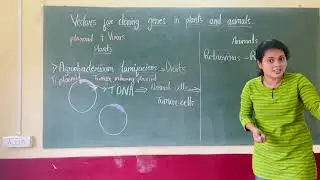 Vectors for cloning genes in plants and animals.
plasmid + Virus
Plants
Animals
> Agrobacterium tumifaciens → Dicots
Retrovirus →
Ti plasmid Tumor inducing plasmid
→ TDNA ⇒ Normal cells →
Tumor cells